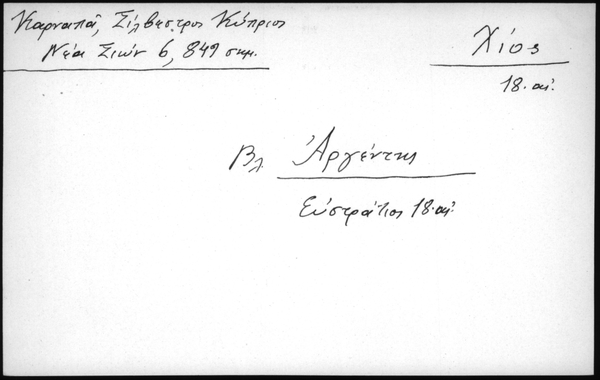 Καρναπᾶ, Σίλβεστρος Κύπριος
Νέα Σιών 6, 849 σημ.
Χίος
18. αἰ.
Βλ Ἀργέντης
Εὐστράτιος 18. αἰ.